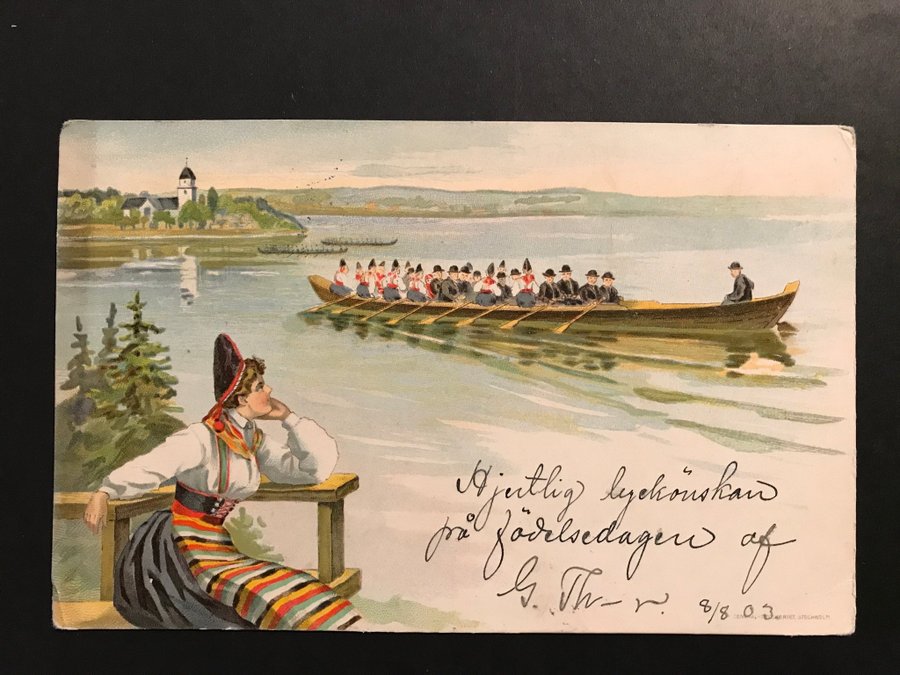 Hjertlig lyckönskan
på födelsedagen af
G. Th-r. 8/8 03.
STOCKHOLM